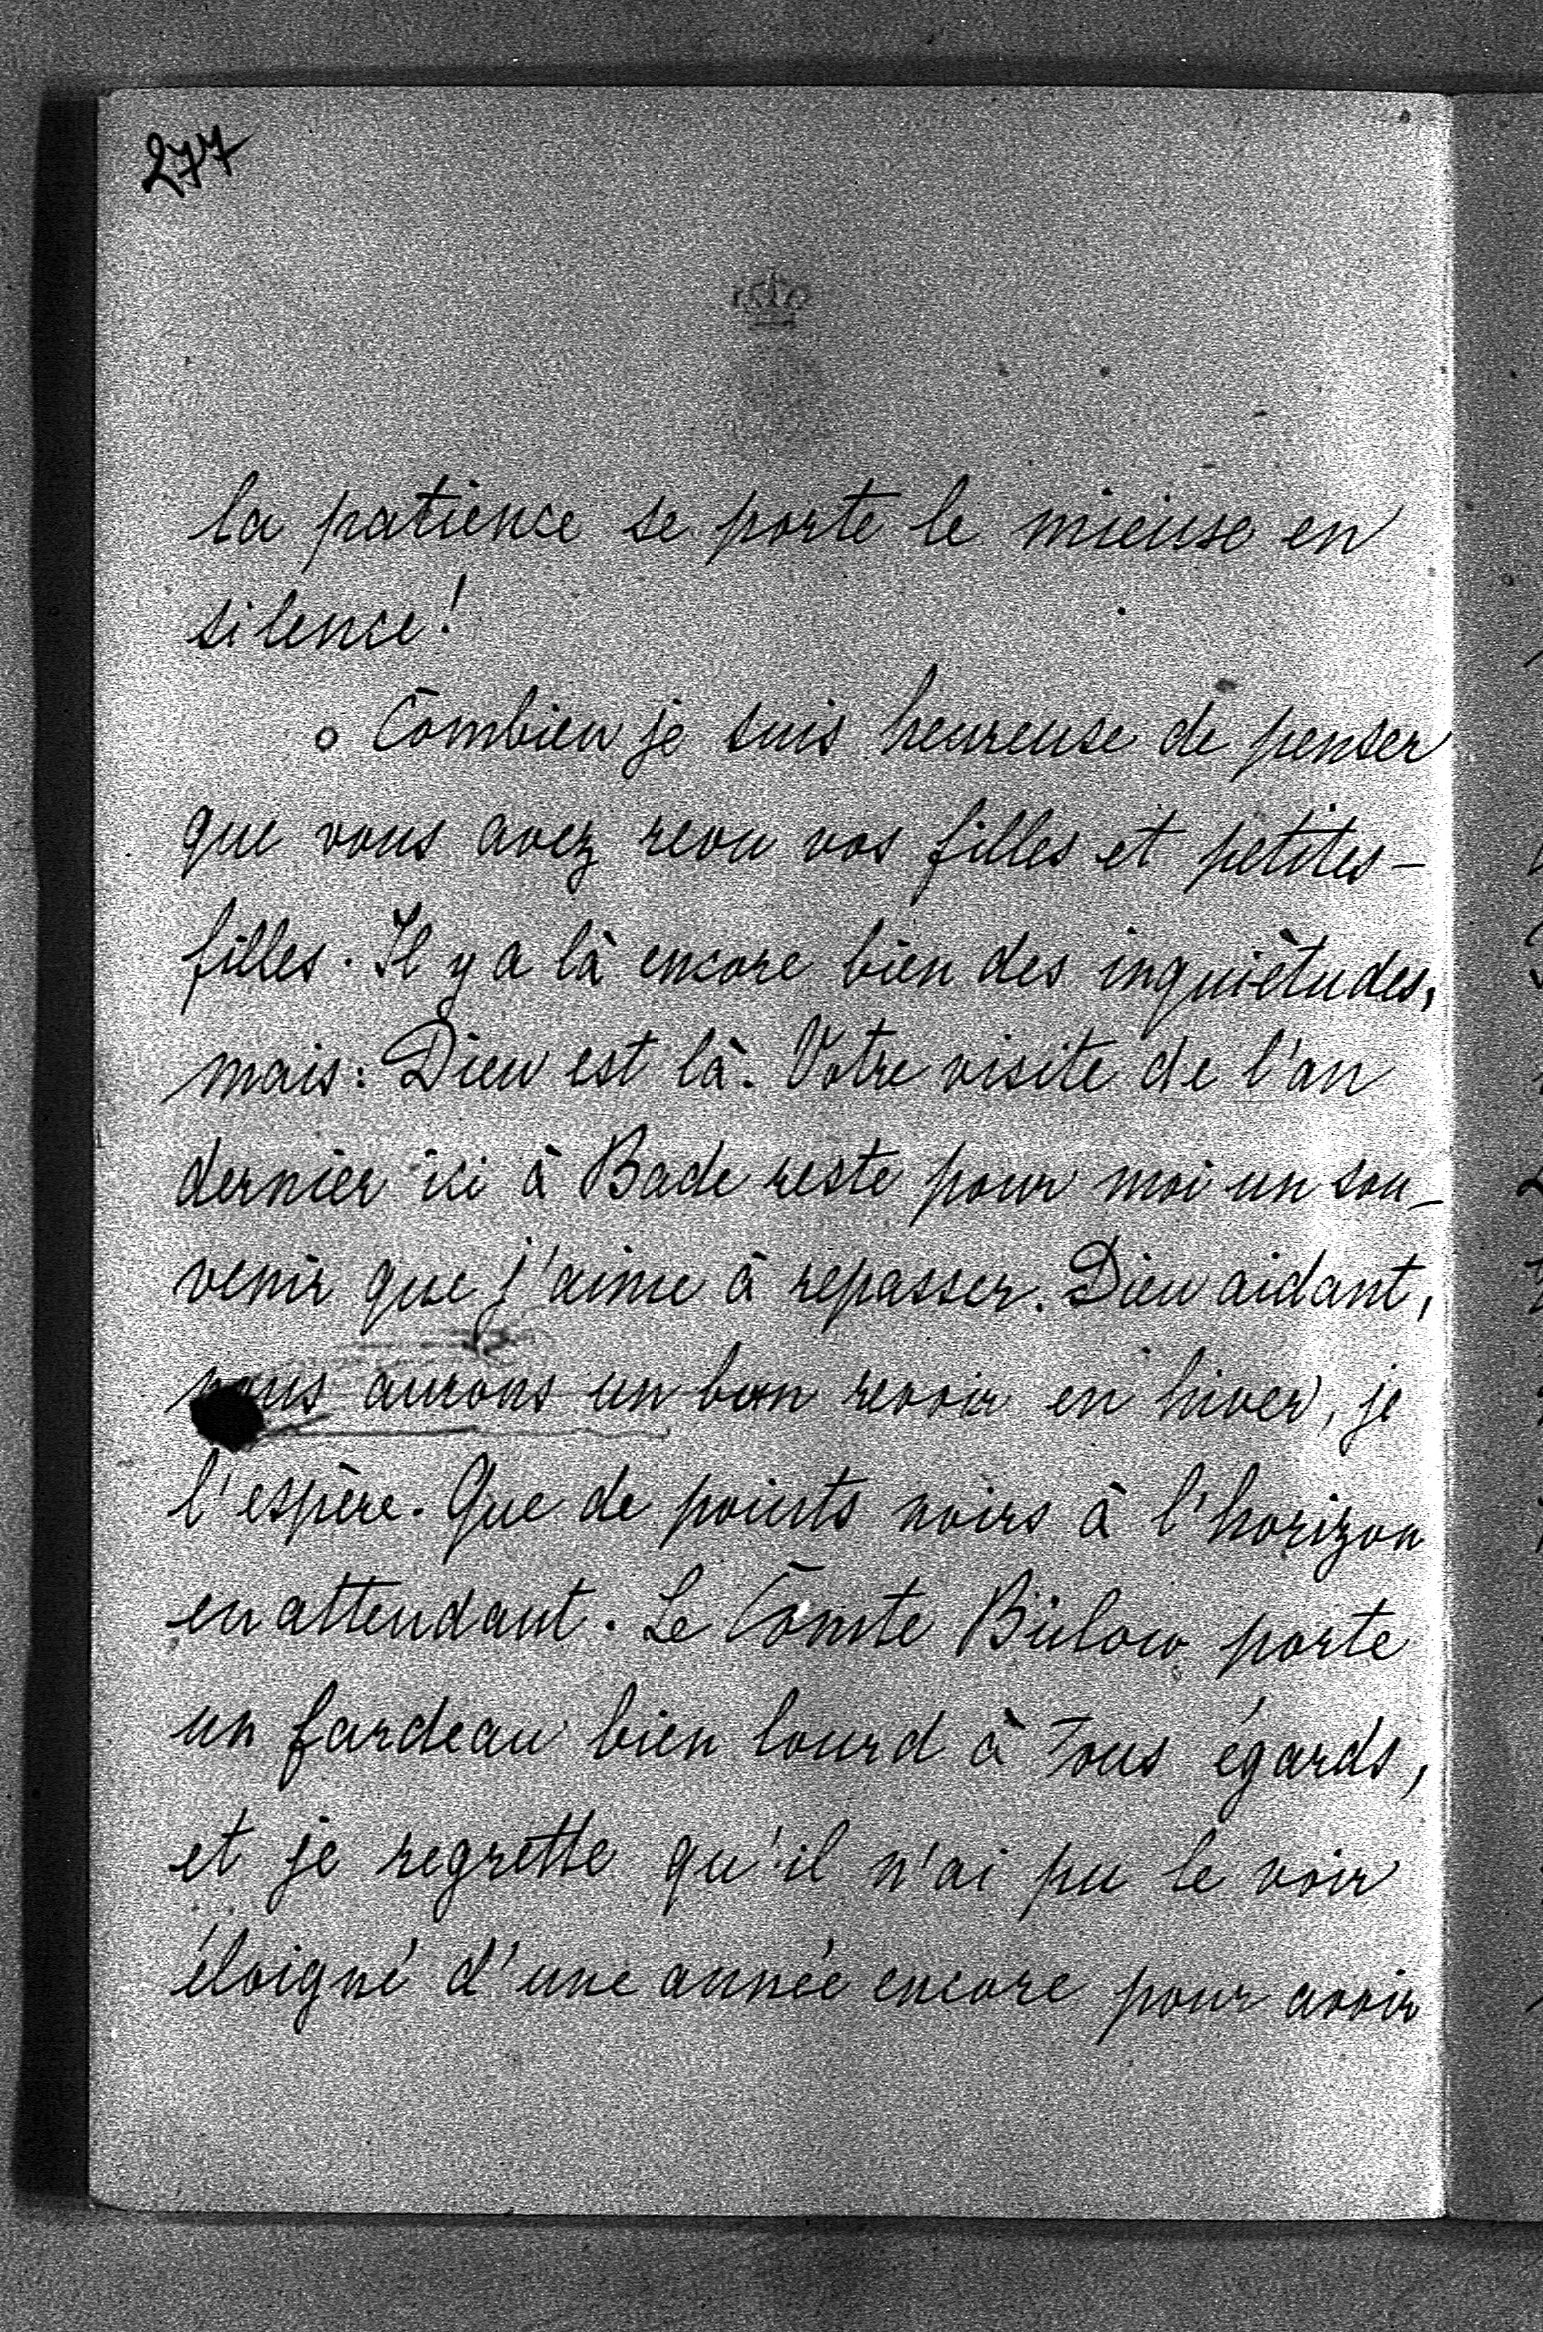 277
la patience se porte le mieux en
silence!
Combien je suis heureuse de penser
que vous avez revu vos filles et petites-
filles. Il y a là encore bien des inquiètudes,
mais: Dieu est là. Votre visite de l'an
dernier ici à Bade reste pour moi un sou-
venir que j'aime à repasser. Dieu aidant,
nous aurons un bon revoir en hiver, je
l'espère. Que de points noirs à l'horizon
en attendant. Le Comte Bülow porte
un fardeau bien lourd à tous égards,
et je regrette qu'il n'ai pu le voir
éloigné d'une année encore pour avoir